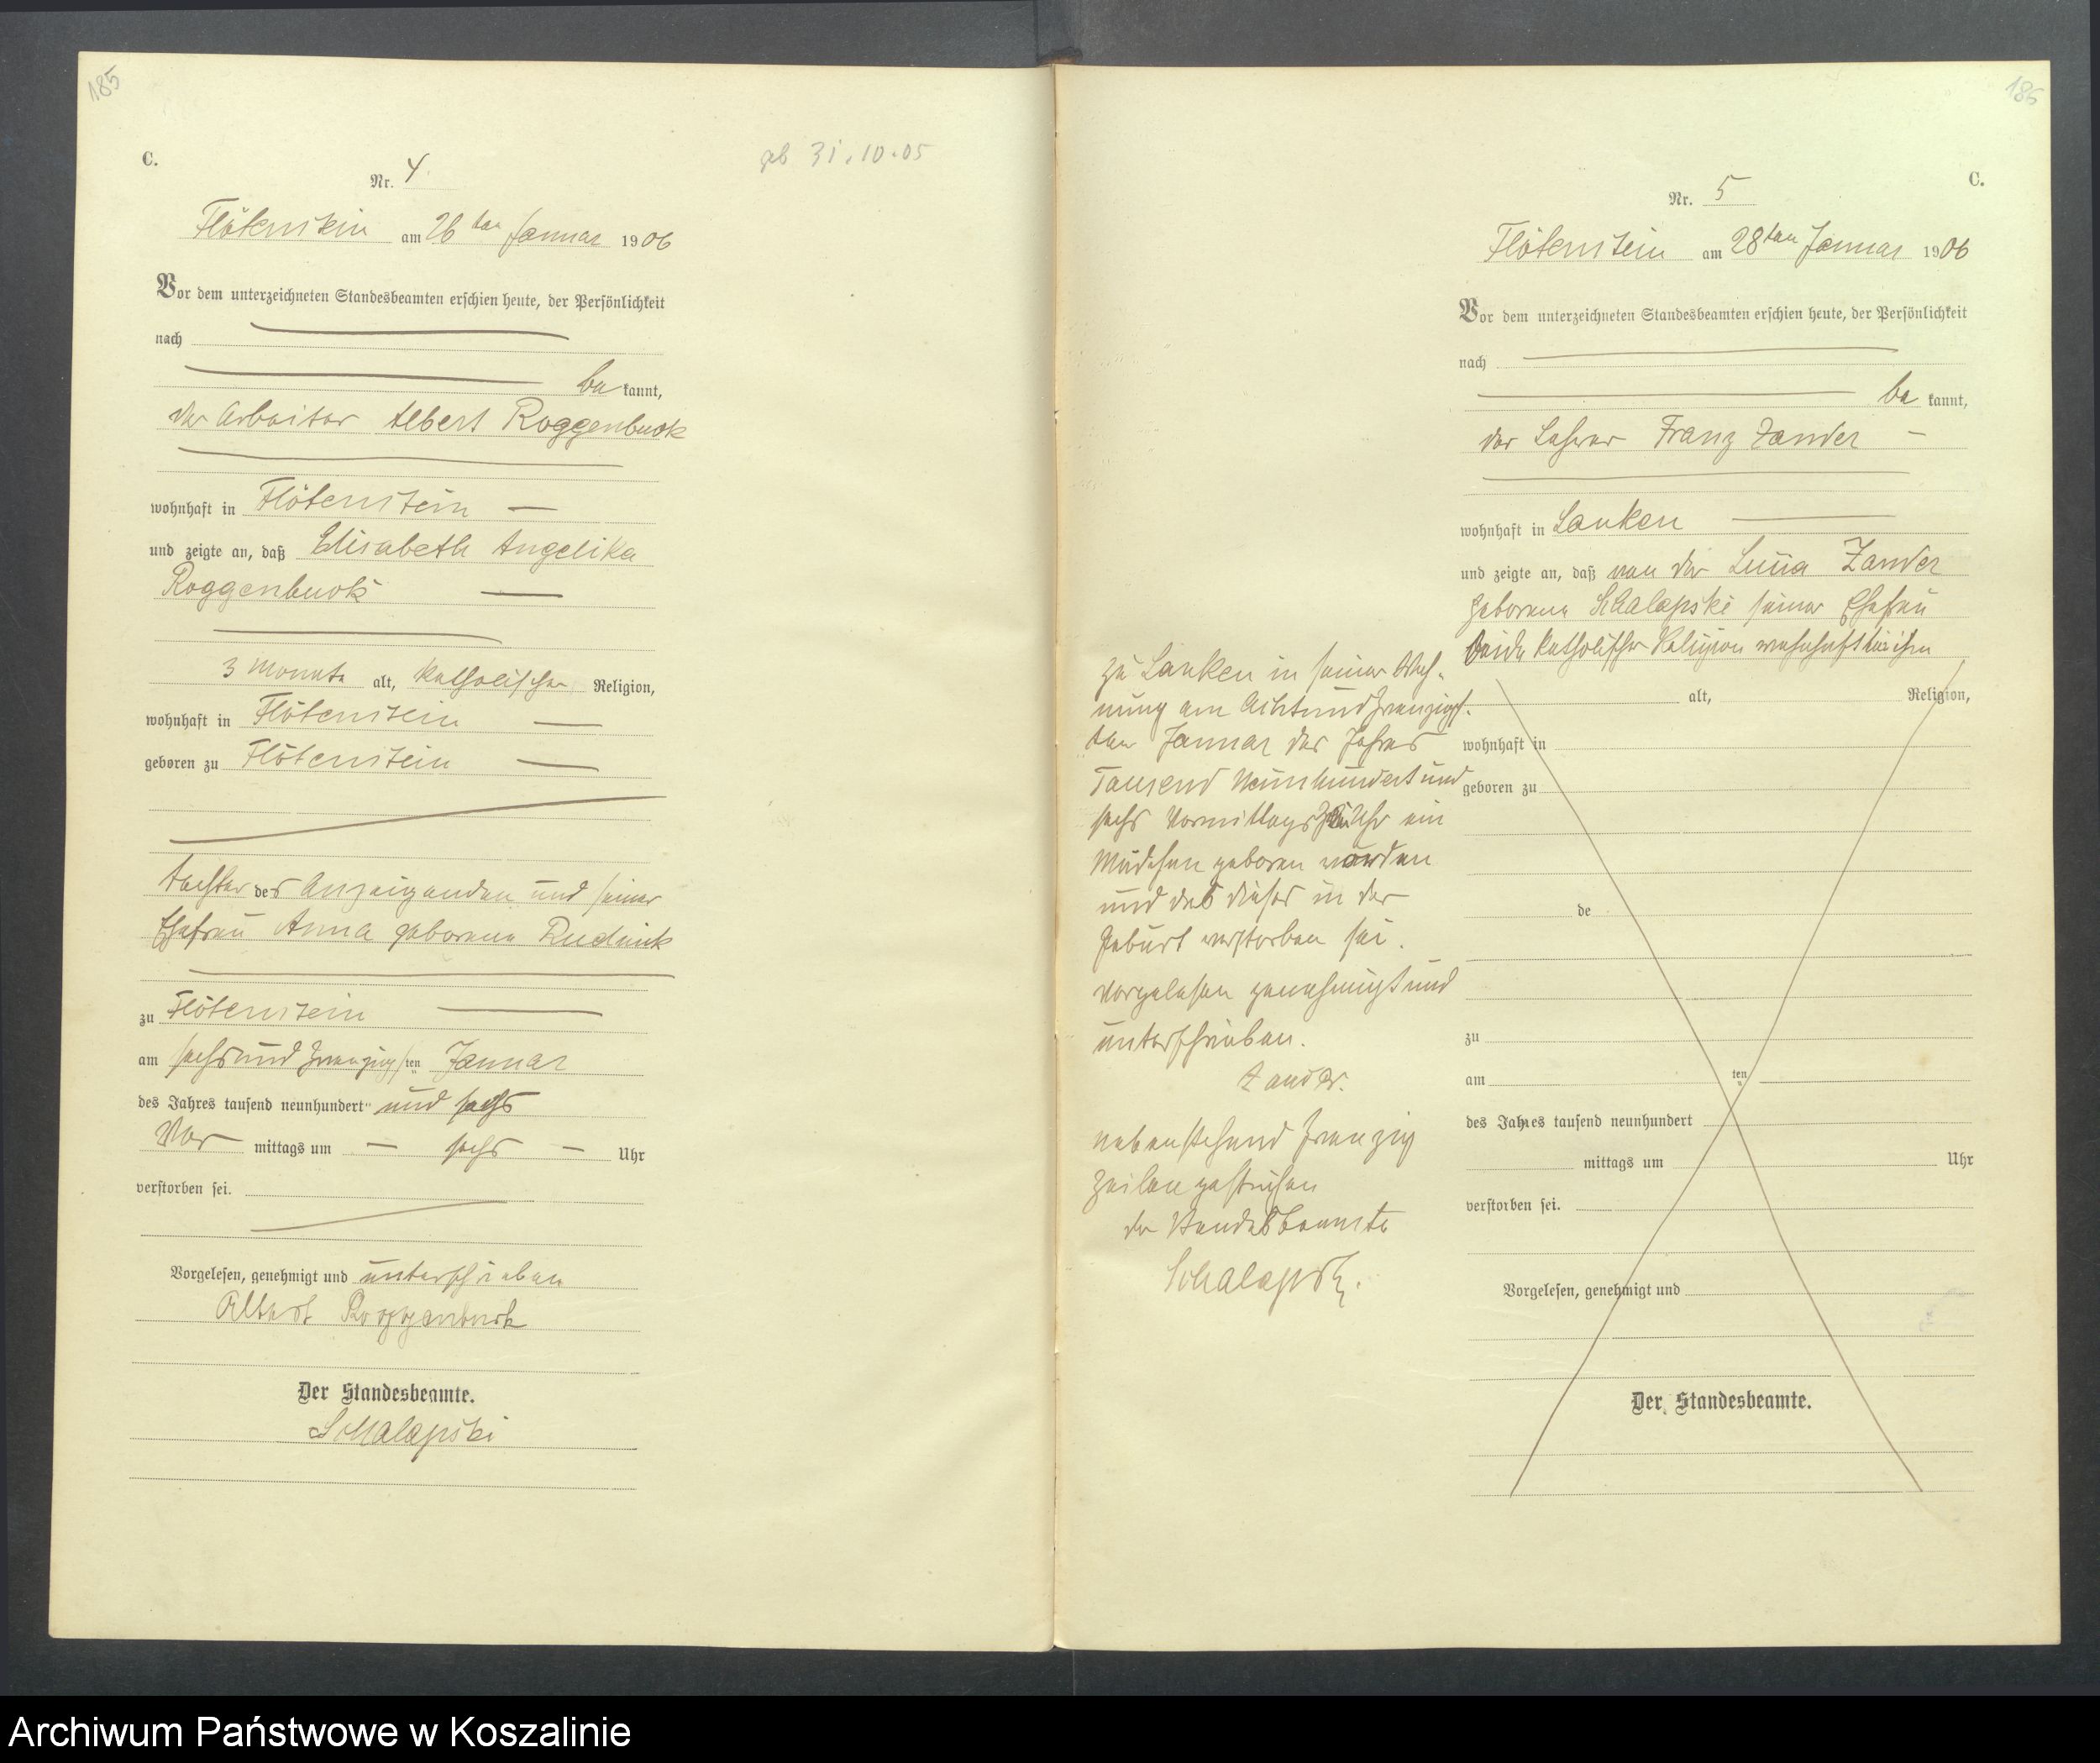 185
C.
Nr. 4.
geb 31.10.05
Flötenstein am 26ten Januar 1906
Vor dem unterzeichneten Standesbeamten erschien heute, der Persönlichkeit
nach
be kannt,
der Arbeiter Albert Roggenbuck
wohnhaft in Flötenstein
und zeigte an, daß Elisabeth Angelika
Roggenbuck
3 Monate alt, katholischer Religion,
wohnhaft in Flötenstein
geboren zu Flötenstein
Tochter des Anzeigenden und seiner
Ehefrau Anna geborene Rudnik
zu Flötenstein
am sechsundzwanzigsten Januar
des Jahres tausend neunhundert und sechs
Vor mittags um sechs Uhr
verstorben sei.
Vorgelesen, genehmigt und unterschrieben
Albert Roggenbuck
Der Standesbeamte.
Schalapski
185
C.
Nr. 5
Flötenstein am 28ten Januar 1906
Vor dem unterzeichneten Standesbeamten erschien heute, der Persönlichkeit
nach
be kannt,
der Lehrer Franz Zander
wohnhaft in Lanken
und zeigte an, daß von der Zander
geborene Schalapski seiner Ehefrau
beide katholischer Religion wohnhaft bei ihm
zu Lanken in seiner Woh-
nung am Achtundzwanzigs-
ten Januar des Jahres
Tausend Neunhundert und
sechs Vormittags Uhr ein
Mädchen geboren worden
und das dieses in der
Geburt verstorben sei.
Vorgelesen genehmigt und
unterschrieben.
Zander.
nebenstehend zwanzig
Zeilen gestrichen
der Standesbeamte
Schalapski.
alt, Religion,
wohnhaft in
geboren zu
de
zu
am ten
des Jahres tausend neunhundert
mittags um Uhr
verstorben sei.
Vorgelesen, genehmigt und
Der Standesbeamte.
Archiwum Państwowe w Koszalinie